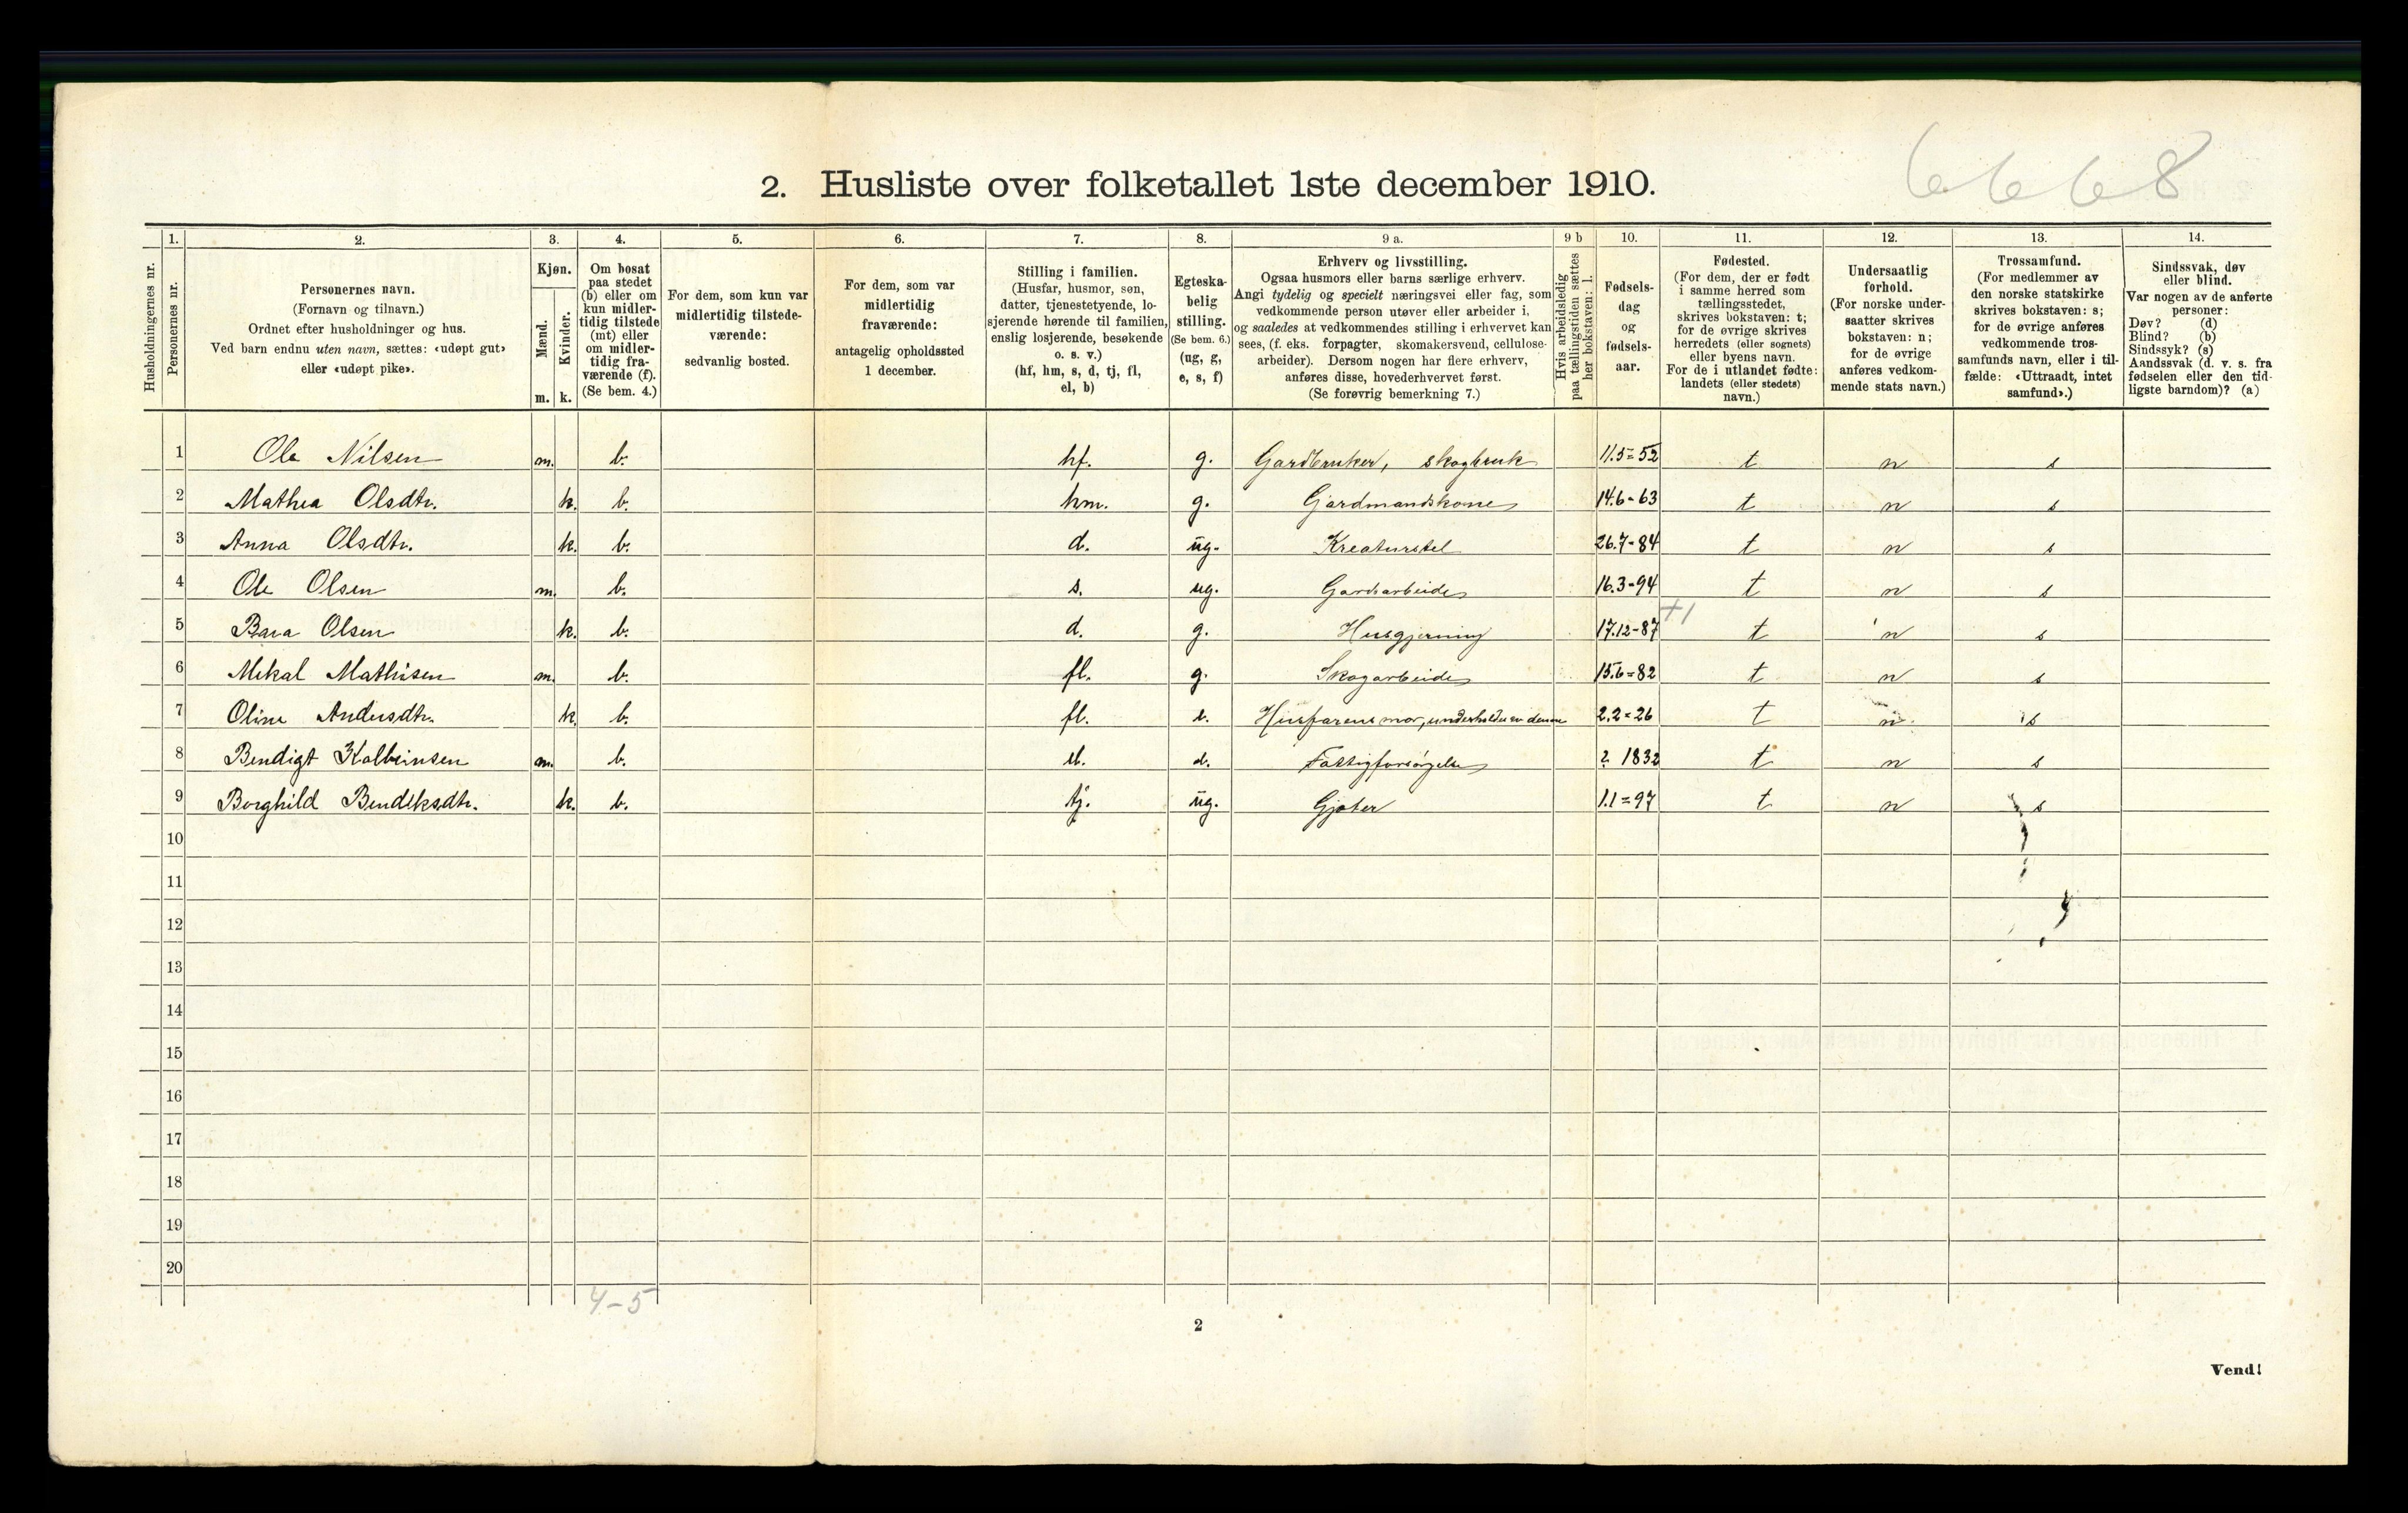 6 6 6 8
2. Husliste over folketallet 1ste december 1910.
1. 2. 3. 4. 5. 6. 7. 8. 9 a. 9 b 10. 11. 12. 13. 14.
Husholdningernes nr.
Personernes nr.
Personernes navn.
(Fornavn og tilnavn.)
Ordnet efter husholdninger og hus.
Ved barn endnu uten navn, sættes: «udøpt gut»
eller «udøpt pike».
Kjøn.
Mænd.
Kvinder.
m. k.
Om bosat
paa stedet
(b) eller om
kun midler-
tidig tilstede
(mt) eller
om midler-
tidig fra-
værende (f).
(Se bem. 4.)
For dem, som kun var
midlertidig tilstede-
værende:
sedvanlig bosted.
For dem, som var
midlertidig
fraværende:
antagelig opholdssted
1 december.
Stilling i familien.
(Husfar, husmor, søn,
datter, tjenestetyende, lo-
sjerende hørende til familien,
enslig losjerende, besøkende
o. s. v.)
(hf, hm, s, d, tj, fl,
el, b)
Egteska-
belig
stilling.
(Se bem. 6.)
(ug, g,
e, s, f)
Erhverv og livsstilling.
Ogsaa husmors eller barns særlige erhverv.
Angi tydelig og specielt næringsvei eller fag, som
vedkommende person utøver eller arbeider i,
og saaledes at vedkommendes stilling i erhvervet kan
sees, (f. eks. forpagter, skomakersvend, cellulose-
arbeider). Dersom nogen har flere erhverv,
anføres disse, hovederhvervet først.
(Se forøvrig bemerkning 7.)
Hvis arbeidsledig
paa tællingstiden sættes
her bokstaven: l.
Fødsels-
dag
og
fødsels-
aar.
Fødested.
(For dem, der er født
i samme herred som
tællingsstedet,
skrives bokstaven: t;
for de øvrige skrives
herredets (eller sognets)
eller byens navn.
For de i utlandet fødte:
landets (eller stedets)
navn.)
Undersaatlig
forhold.
(For norske under-
saatter skrives
bokstaven: n;
for de øvrige
anføres vedkom-
mende stats navn.)
Trossamfund.
(For medlemmer av
den norske statskirke
skrives bokstaven: s;
for de øvrige anføres
vedkommende tros-
samfunds navn, eller i til-
fælde: «Uttraadt, intet
samfund».)
Sindssvak, døv
eller blind.
Var nogen av de anførte
personer:
Døv? (d)
Blind? (b)
Sindssyk? (s)
Aandssvak (d. v. s. fra
fødselen eller den tid-
ligste barndom)? (a)
1 Ole Nilsen m. b. hf. g. Gardbruker, skogbruk 11.5=52 t n s
2 Mathea Olsdtr. k. b. hm. g. Gardmandskone 14.6-63 t n s
3 Anna Olsdtr. k. b. d. ug. Kreaturstel 26.7-84 t n s
4 Ole Olsen m. b. s. ug. Gardsarbeide 16.3-94 t n s
5 Bara Olsen k. b. d. g. Husgjerning 17.12-87 +1 t n s
6 Mikal Mathisen m. b. fl. g. Skogarbeide 15.6=82 t n s
7 Oline Andersdtr. k. b. fl. e. Husfarens mor, underholdes av denne 2.2=26 t n s
8 Bendigt Kolbeinsen m. b. el. e. Fattigforsørgelse ? 1832 t n s
9 Borghild Bendiksdtr. k. b. tj. ug. Gjæter 1.1=97 t n s
10
11
12
13
14
15
16
17
18
19
20
4-5
2
Vend!